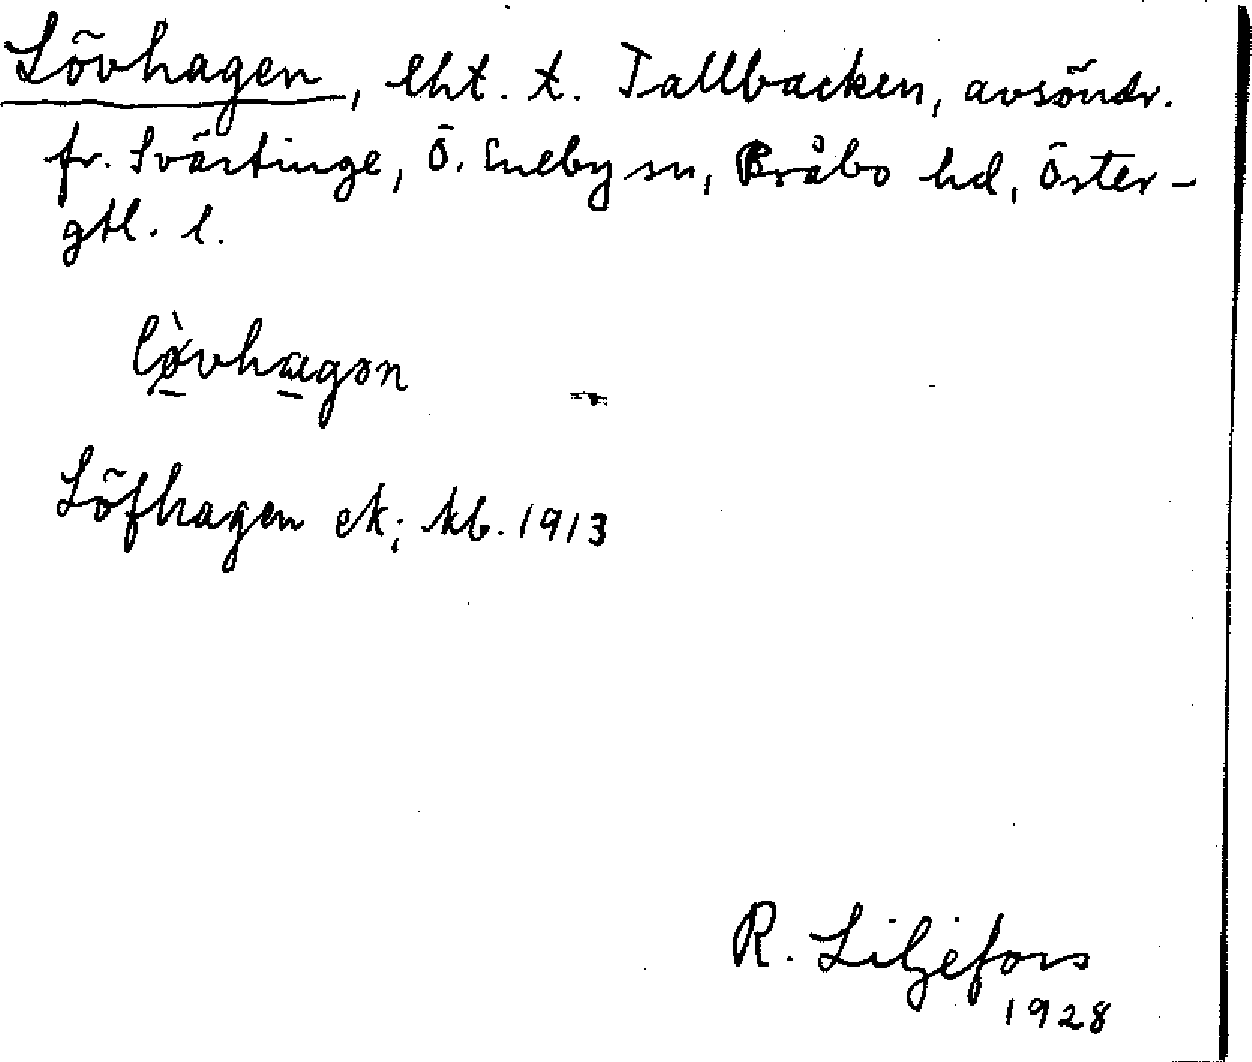 Lövhagen, lht. t. Tallbacken, avsöndr.
fr. Svärtinge, Ö. Eneby sn, Bråbo hd, Öster-
gtl. l.
lø̀vhagən
Löfhagen ek; kb. 1913
R. Liljefors
1928